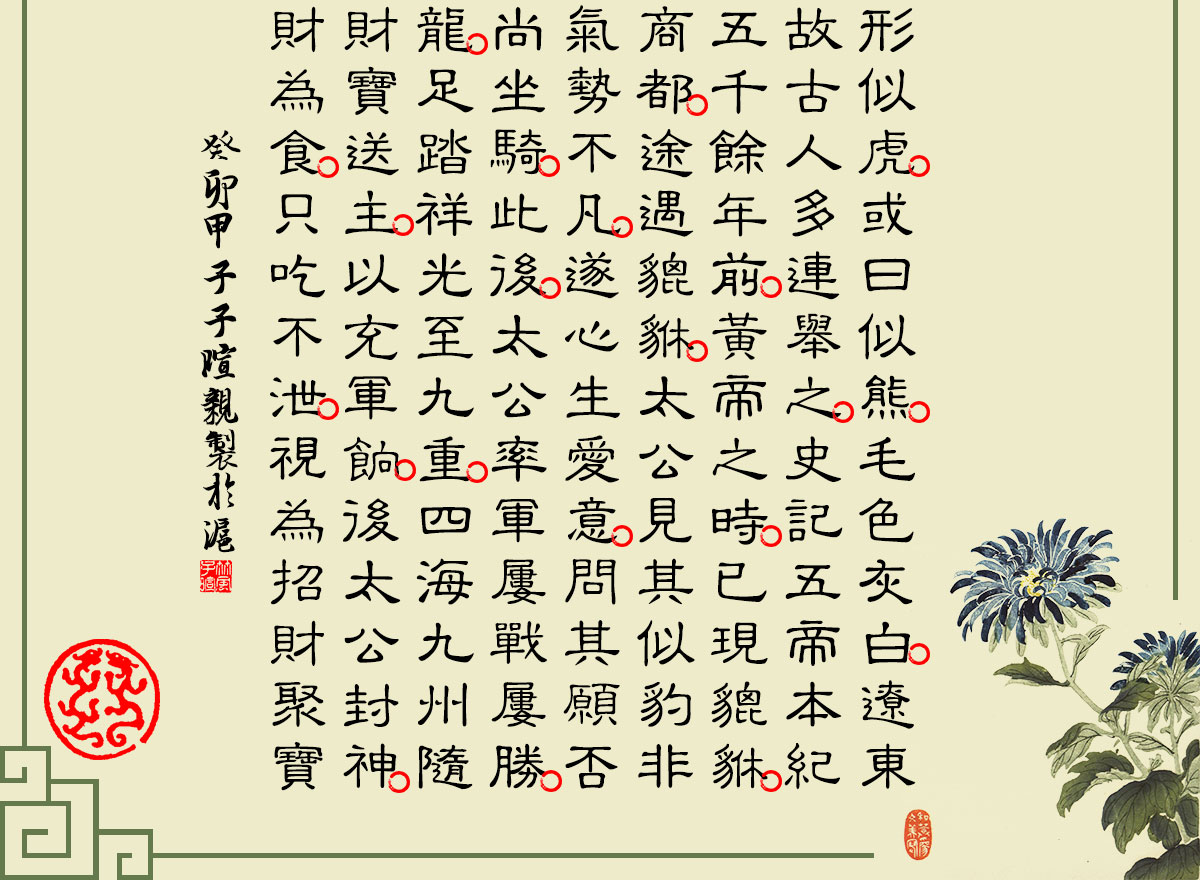 形似虎。或曰似熊。毛色灰白。遼東
故古人多連舉之。史記五帝本紀
五千餘年前。黃帝之時。已現貔貅。
商都。途遇貔貅。太公見其似豹非
氣勢不凡。遂心生愛意。問其願否
尚坐騎。此後。太公率軍屢戰屢勝。
龍。足踏祥光至九重。四海九州隨
財寶送主。以充軍餉。後太公封神。
財為食。只吃不泄。視為招財聚寶
癸卯甲子子暄親製於滬